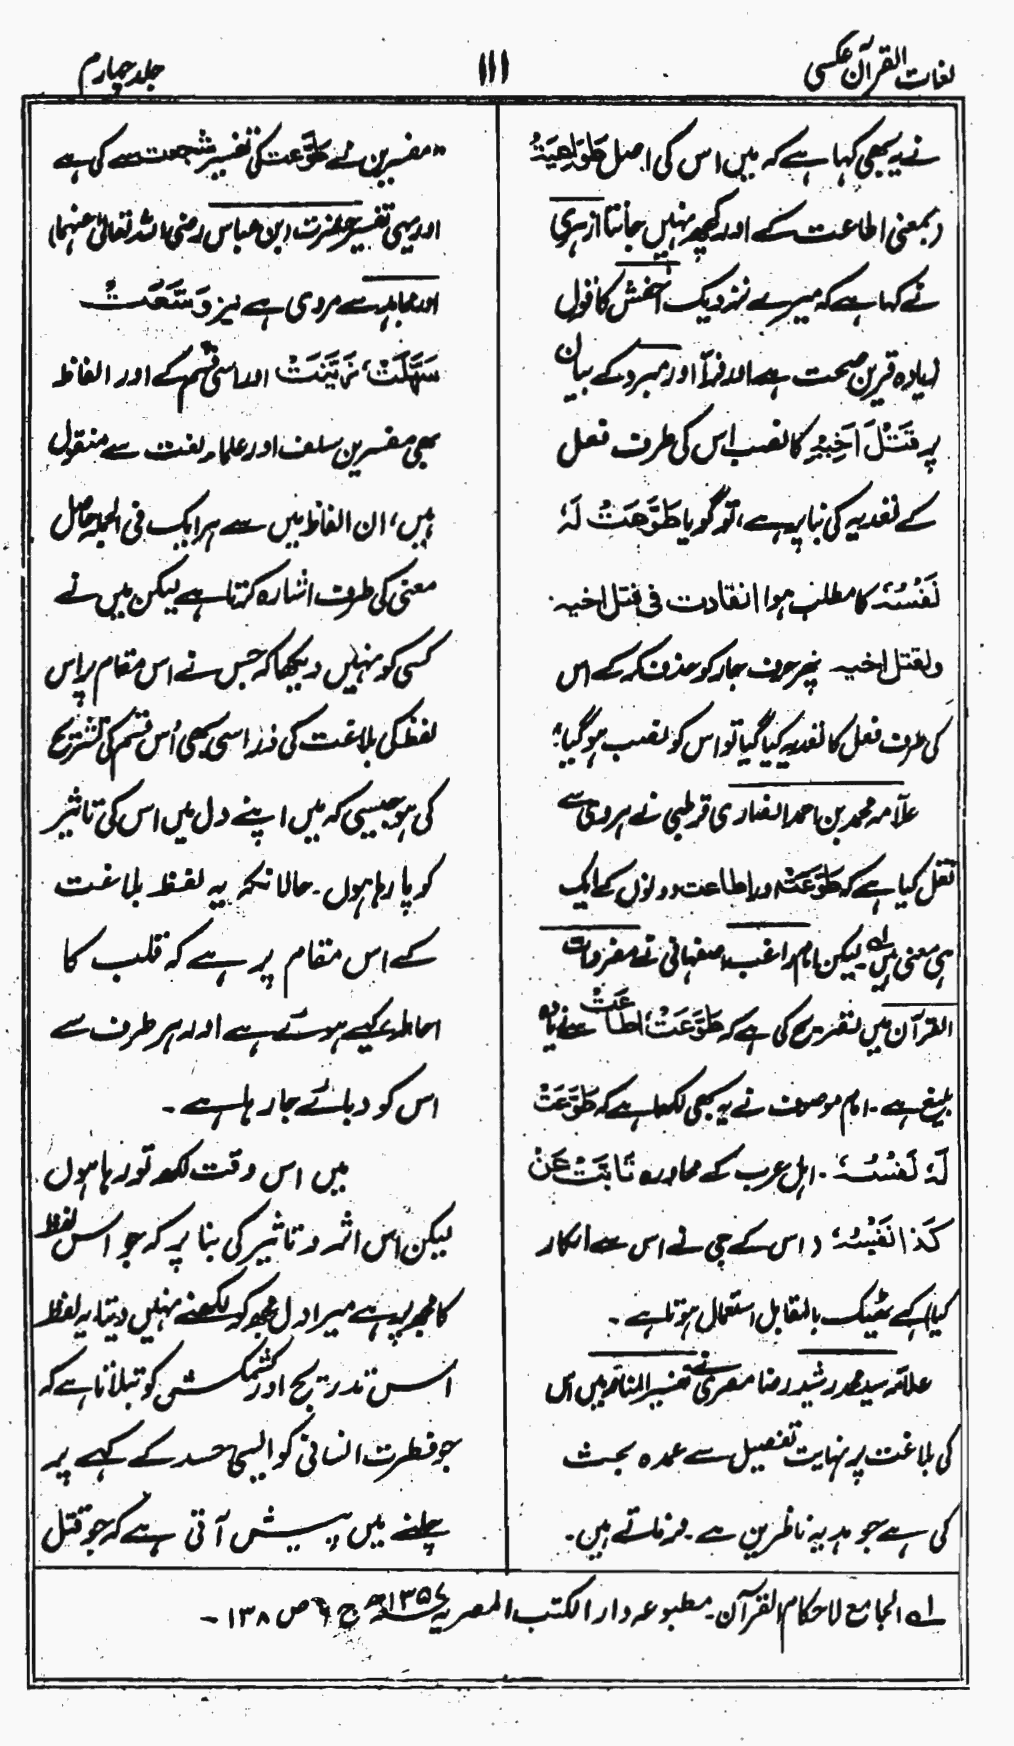 لغات القرآن عکسی
۱۱۱
جلد چہارم
نے یہ بھی کہا ہے کہ میں اس کی اصل طَوَاعِیَتْ
(بمعنی اطاعت کے اور کچھ نہیں جانتا ازہری
نے کہا ہے کہ میرے نزدیک اخفش کا قول
زیادہ قرین صحت ہے اور فرّاؔ اور مبرد کے بیان
پر قَتْلَ اَخِیْہِ کا نصب اس کی طرف فعل
کے تعدیہ کی بنا پر ہے، تو گویا طَوَّعَتْ لَہٗ
نَفْسُہٗ کا مطلب ہوا انقادت فی قتل اخیہ
ولقتل اخیہ پھر حرف جار کو حذف کر کے اس
کی طرف فعل کا تعدیہ کیا گیا تو اس کو نصب ہو گیا؛
علّامہ محمد بن احمد انصاری قرطبی نے ہروی سے
نقل کیا ہے کہ طَوَّعَتْ اور اطاعت دونوں کے ایک
ہی معنی ہیں لہ لیکن امام راغب اصفہانی نے مفردات
القرآن میں تصریح کی ہے کہ طَوَّعَتْ، اطاعَتْ سے زیادہ
بلیغ ہے۔ امام موصوف نے یہ بھی لکھا ہے کہ طَوَّعَتْ
لَہٗ نَفْسُہٗ۔ اہل عرب کے محاورہ تَابَّتْ عَنْ
کَذَا نَفْسُہٗ (اس کے جی نے اس سے انکار
کیا) کے ٹھیک بالمقابل استعمال ہوتا ہے۔
علامہ سید محمد رشید رضا مصری نے تفسیر المنار میں اس
کی بلاغت پر نہایت تفصیل سے عمدہ بحث
کی ہے جو ہدیہ ناظرین ہے۔ فرماتے ہیں۔
"مفسرین نے طَوَّعَت کی تفسیر شجعت سے کی ہے
اور یہی تفسیر حضرت ابن عباس (رضی اللہ تعالیٰ عنہما)
اور مجاہد سے مروی ہے نیز وَسَّعَتْ
سَہَّلَتْ، زَیَّنَتْ اور اسی قسم کے اور الفاظ
بھی مفسرین سلف اور علماء لغت سے منقول
ہیں، ان الفاظ میں سے ہر ایک فی الجملہ حاصل
معنی کی طرف اشارہ کرتا ہے لیکن میں نے
کسی کو نہیں دیکھا کہ جس نے اس مقام پر اس
لفظ کی بلاغت کی ذرا سی بھی اُس قسم کی تشریح
کی ہو جیسی کہ میں اپنے دل میں اس کی تاثیر
کو پا رہا ہوں۔ حالانکہ یہ لفظ بلاغت
کے اس مقام پر ہے کہ قلب کا
احاطہ کیے ہوئے ہے اور ہر طرف سے
اس کو دبائے جا رہا ہے۔
میں اس وقت لکھ تو رہا ہوں
لیکن اس اثر و تاثیر کی بنا پر کہ جو اس لفظ
کا مجھ پر ہے میرا دل مجھ کو لکھنے نہیں دیتا، یہ لفظ
اس تدریج اور کشمکش کو بتلاتا ہے کہ
جو فطرت انسانی کو ایسی حسد کے کہے پر
چلنے میں پیش آتی ہے کہ جو قتل
لہ الجامع لاحکام القرآن۔ مطبوعہ دار الکتب المصریہ ۱۳۵۷ھ ج ۶ ص ۱۳۸۔